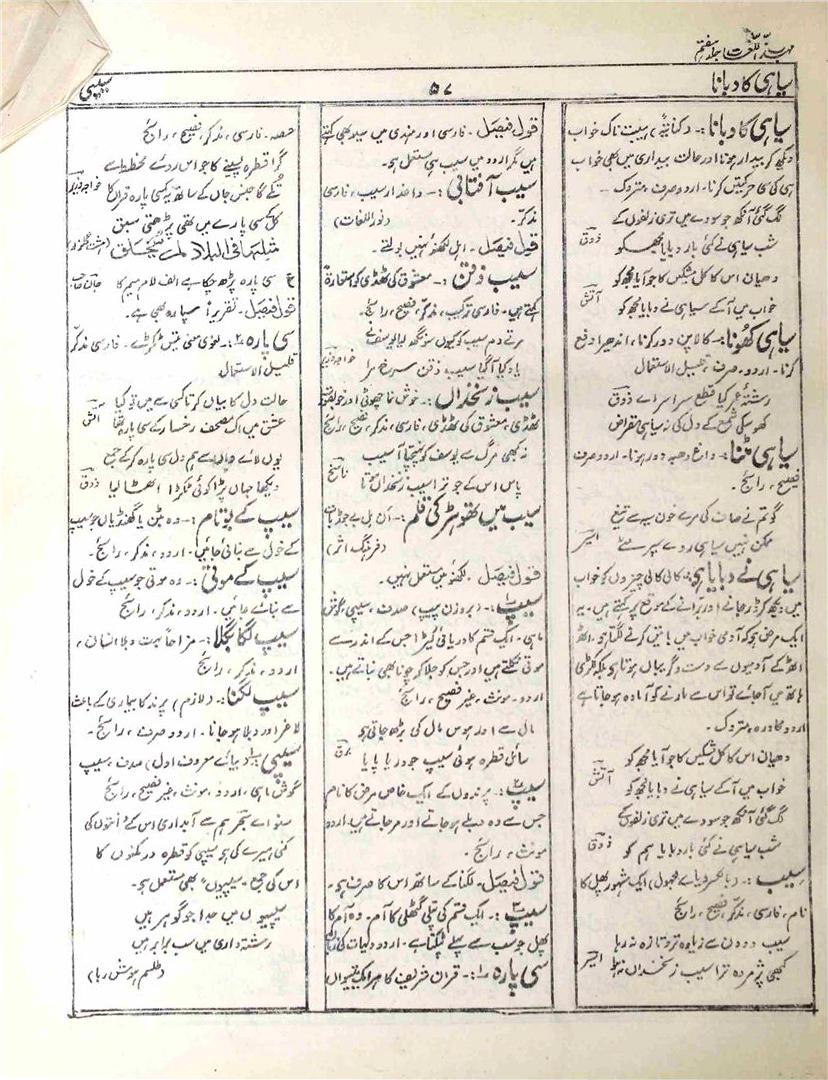 مہذب اللغات جلد ہفتم
سیاہی کا دبانا
۵۷
سیپی
سیاہی کا دبانا:۔ (کنایۃً) ہیبت ناک خواب
دیکھ کر بیدار ہونا اور حالت بیداری میں بھی خواب
ہی کی سی حرکتیں کرنا۔ اردو صرف، متروک۔
لگ گئی آنکھ جو سودے میں تری زلفوں کے
شب سیاہی نے کئی بار دبایا مجھ کو ذوقؔ
دھیان اس کا کل مشکیں کا جو آیا مجھ کو
خواب میں آ کے سیاہی نے دبایا مجھ کو آتشؔ
سیاہی کھونا:۔ کالا پن دور کرنا، اندھیرا دفع
کرنا۔ اردو۔ صرف، قلیل الاستعمال
رشتۂ عمر کیا قطع سراسر اے ذوقؔ
کھو سکی شمع کے دل کی نہ سیاہی مقراض
سیاہی مٹنا:۔ داغ دھبہ دور ہونا۔ اردو صرف
فصیح، رائج۔
گو تم نے صاف کی مرے خون سے تیغ
ممکن نہیں سیاہی روے سپر مٹے اسیرؔ
سیاہی نے دبایا ہی:۔ کالی کالی چیزوں کو خواب
میں دیکھ کر ڈر جانے اور برّانے کے موقع پر کہتے ہیں۔ یہ
ایک مرض ہی کہ آدمی خواب میں باتیں کرنے لگتا ہی، اٹھ
اٹھ کے آدمیوں سے دست و گریباں ہوتا ہی بلکہ لکڑی
ہاتھ میں آجائے تو اس سے مارنے کو آمادہ ہو جاتا ہے
اردو محاورہ، متروک۔
دھیان اس کا کل مشکیں کا جو آیا مجھ کو
خواب میں آ کے سیاہی نے دبایا مجھ کو آتشؔ
لگ گئی آنکھ جو سودے میں تری زلفوں کے
شب سیاہی نے کئی بار دبایا ہم کو ذوقؔ
سیب:۔ (بالکسر و یاے مجہول) ایک مشہور پھل کا
نام، فارسی، مذکر، فصیح، رائج
سیب دو دن سے زیادہ تر و تازہ نہ رہا
کبھی پژمردہ ترا سیب زنخداں نہ ہوا اسیرؔ
قول فیصل۔ فارسی اور ہندی میں سیو بھی کہتے
ہیں مگر اردو میں سیب ہی مستعمل ہی۔
سیب آفتابی:۔ واحد از سیب، فارسی
مذکر۔ (نور اللغات)
قول فیصل۔ اہل لکھنؤ نہیں بولتے۔
سیب ذقن:۔ معشوق کی ٹھڈی کو استعارۃً
کہتے ہیں۔ فارسی ترکیب، مذکر، فصیح، رائج۔
مرتے دم سیب کو کیوں سونگھ لیا یوسف نے
یاد کیا آگیا سیب ذقن
سیب زنخداں:۔ خوش نما چھوٹی اور خوبصورت
ٹھڈی، معشوق کی ٹھڈی، فارسی، مذکر، فصیح، رائج
نہ کبھی مرگ سے یوسف کو پہنچتا آسیب
پاس اس کے جو ترا سیب زنخداں ہوتا ناسخؔ
سیب میں تھوہڑ کی قلم:۔ اَن مل بے جوڑ بات
(فرہنگ اثر)
قول فیصل۔ لکھنؤ میں مستعمل نہیں۔
سیپ۱:۔ (بروزن پیپ) صدف، سیپی، گوش
ماہی۔ ایک قسم کا دریائی کیڑا جس کے اندر سے
موتی نکلتے ہیں اور جس کو جلا کر چونا بھی بناتے ہیں۔
اردو۔ مونث، غیر فصیح، رائج
مال سے اور ہوس مال کی بڑھ جاتی ہی
سائل قطرہ ہوئی سیپ جو دریا پایا برقؔ
سیپ۲:۔ پرندوں کے ایک خاص مرض کا نام
جس سے وہ دبلے ہو جاتے اور مر جاتے ہیں۔ اردو
مونث، رائج۔
قول فیصل۔ لگنا کے ساتھ اس کا صرف ہی۔
سیپ۳:۔ ایک قسم کی پتلی گٹھلی کا آم۔ وہ آم کا
پھل جو سب سے پہلے ٹپکتا ہے۔ اردو دیہات کی زبان
سی پارہ۱:۔ قرآن شریف کا ہر ایک تیسواں
حصہ۔ فارسی، مذکر، فصیح، رائج
گرا قطرہ پسینے کا جو اس روئے مخطط سے
کل کسی پارے میں تھی پڑھتی سبق
مثلہا فی البلاد لم یخلق
ع سی پارہ پڑھ چکا ہے الف لام میم کا جان صاحب
قول فیصل۔ تقریراً سپارہ بھی ہے۔
سی پارہ۲:۔ لغوی معنی تیس ٹکڑے۔ فارسی مذکر
قلیل الاستعمال
حالت دل کا بیاں کرتا کسی سے میں تو کیا
عشق میں اک مصحف رخسار کے سی پارہ تھا آتشؔ
یوں لائے واں سے ہم دل سی پارہ کر کے جمع
دیکھا جہاں پڑا کوئی ٹکڑا اٹھا لیا ذوقؔ
سیپ کے بوتام:۔ وہ بٹن یا گھنڈیاں جو سیپ
کے خول سے بنائی جائیں۔ اردو، مذکر، رائج۔
سیپ کے موتی:۔ وہ موتی جو سیپ کے خول
سے بنائے جائیں۔ اردو، مذکر، رائج
سیپ لگا بگلا:۔ مزاحاً بہت دبلا انسان،
اردو، مذکر، رائج
سیپ لگنا:۔ (لازم) پرند کا بیماری کے باعث
لاغر اور دبلا ہو جانا۔ اردو صرف، رائج۔
سیپی:۔ (بیائے معروف اول) صدف، سیپ
گوش ماہی، اردو، مونث، غیر فصیح، رائج
سنو اے بحرؔ ہم سے آبداری اس کے دانتوں کی
کنی ہیرے کی ہو سیپی کو قطرہ در مکنوں کا
اس کی جمع "سیپیوں" بھی مستعمل ہی۔
سیپیوں میں جدا جو گوہر ہیں
رشتہ داری میں سب برابر ہیں
(طلسم ہوش ربا)